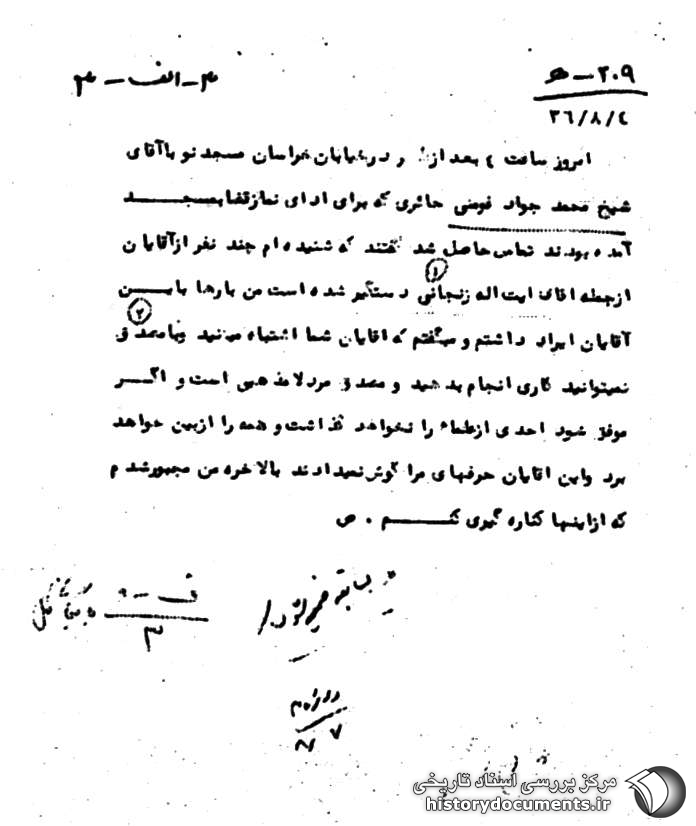 ۲۰۹ – هـ
۴ – الف – ۳
۳۶/۸/٤
امروز ساعت ٤ بعد از ظهر در خیابان خراسان مسجد نو با آقای
شیخ محمد جواد فومنی حائری که برای ادای نماز قضا بمسجد
آمده بودند تماس حاصل شد گفتند که شنیده ام چند نفر از آقایان
از جمله آقای ایت اله زنجانی دستگیر شده است من بارها باین
۱
آقایان ایراد داشتم و میگفتم که اقایان شما اشتباه میکنید و با مصدق
۲
نمیتوانید کاری انجام بدهید و مصدق مرد لامذهبی است و اگر
موفق شود احدی از علماء را نخواهد گذاشت و همه را از بین خواهد
برد و این اقایان حرفهای مرا گوش نمیدادند بالاخره من مجبور شدم
که از اینها کناره گیری کنم . ص
سابقه ضمیمه شود
ف – ۹
۳
۸/۷
مرکز بررسی اسناد تاریخی
historydocuments.ir